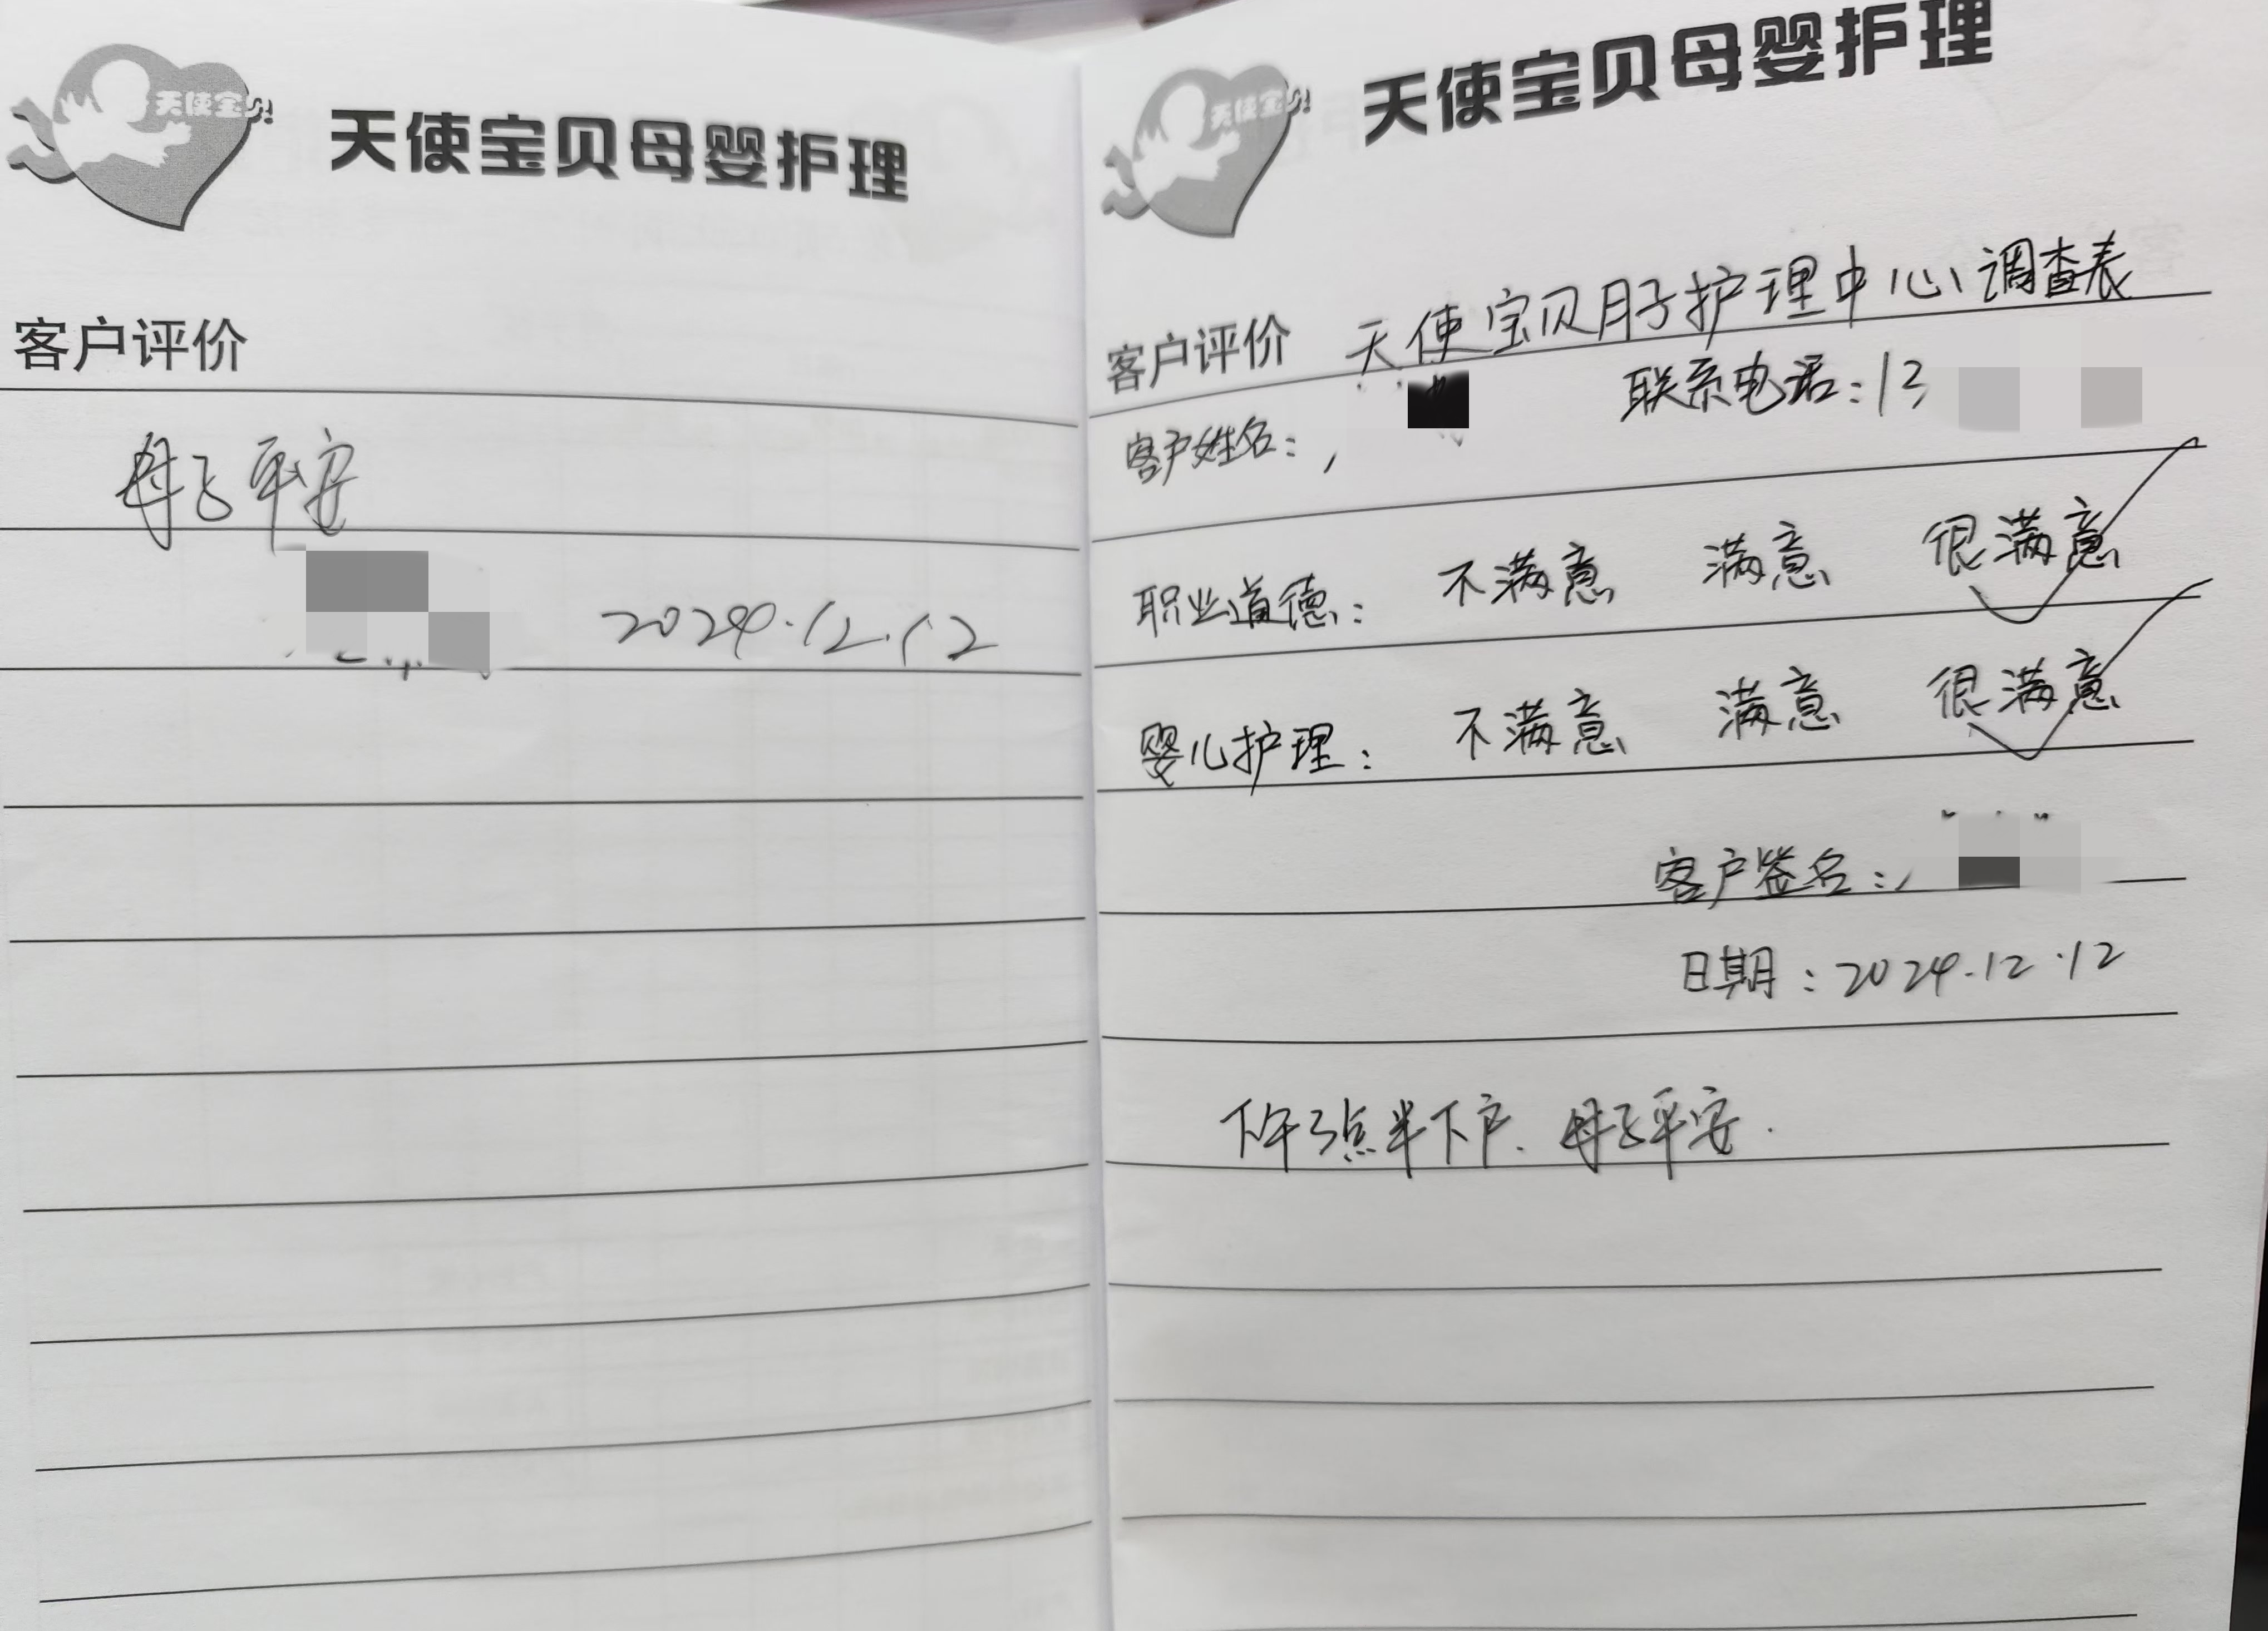 天使宝贝
天使宝贝母婴护理
客户评价
母子平安
2024.12.12
天使宝贝
天使宝贝母婴护理
客户评价 天使宝贝月子护理中心调查表
客户姓名: 联系电话:13
职业道德: 不满意 满意 很满意
婴儿护理: 不满意 满意 很满意
客户签名:
日期:2024.12.12
下午3点半下户.母子平安.